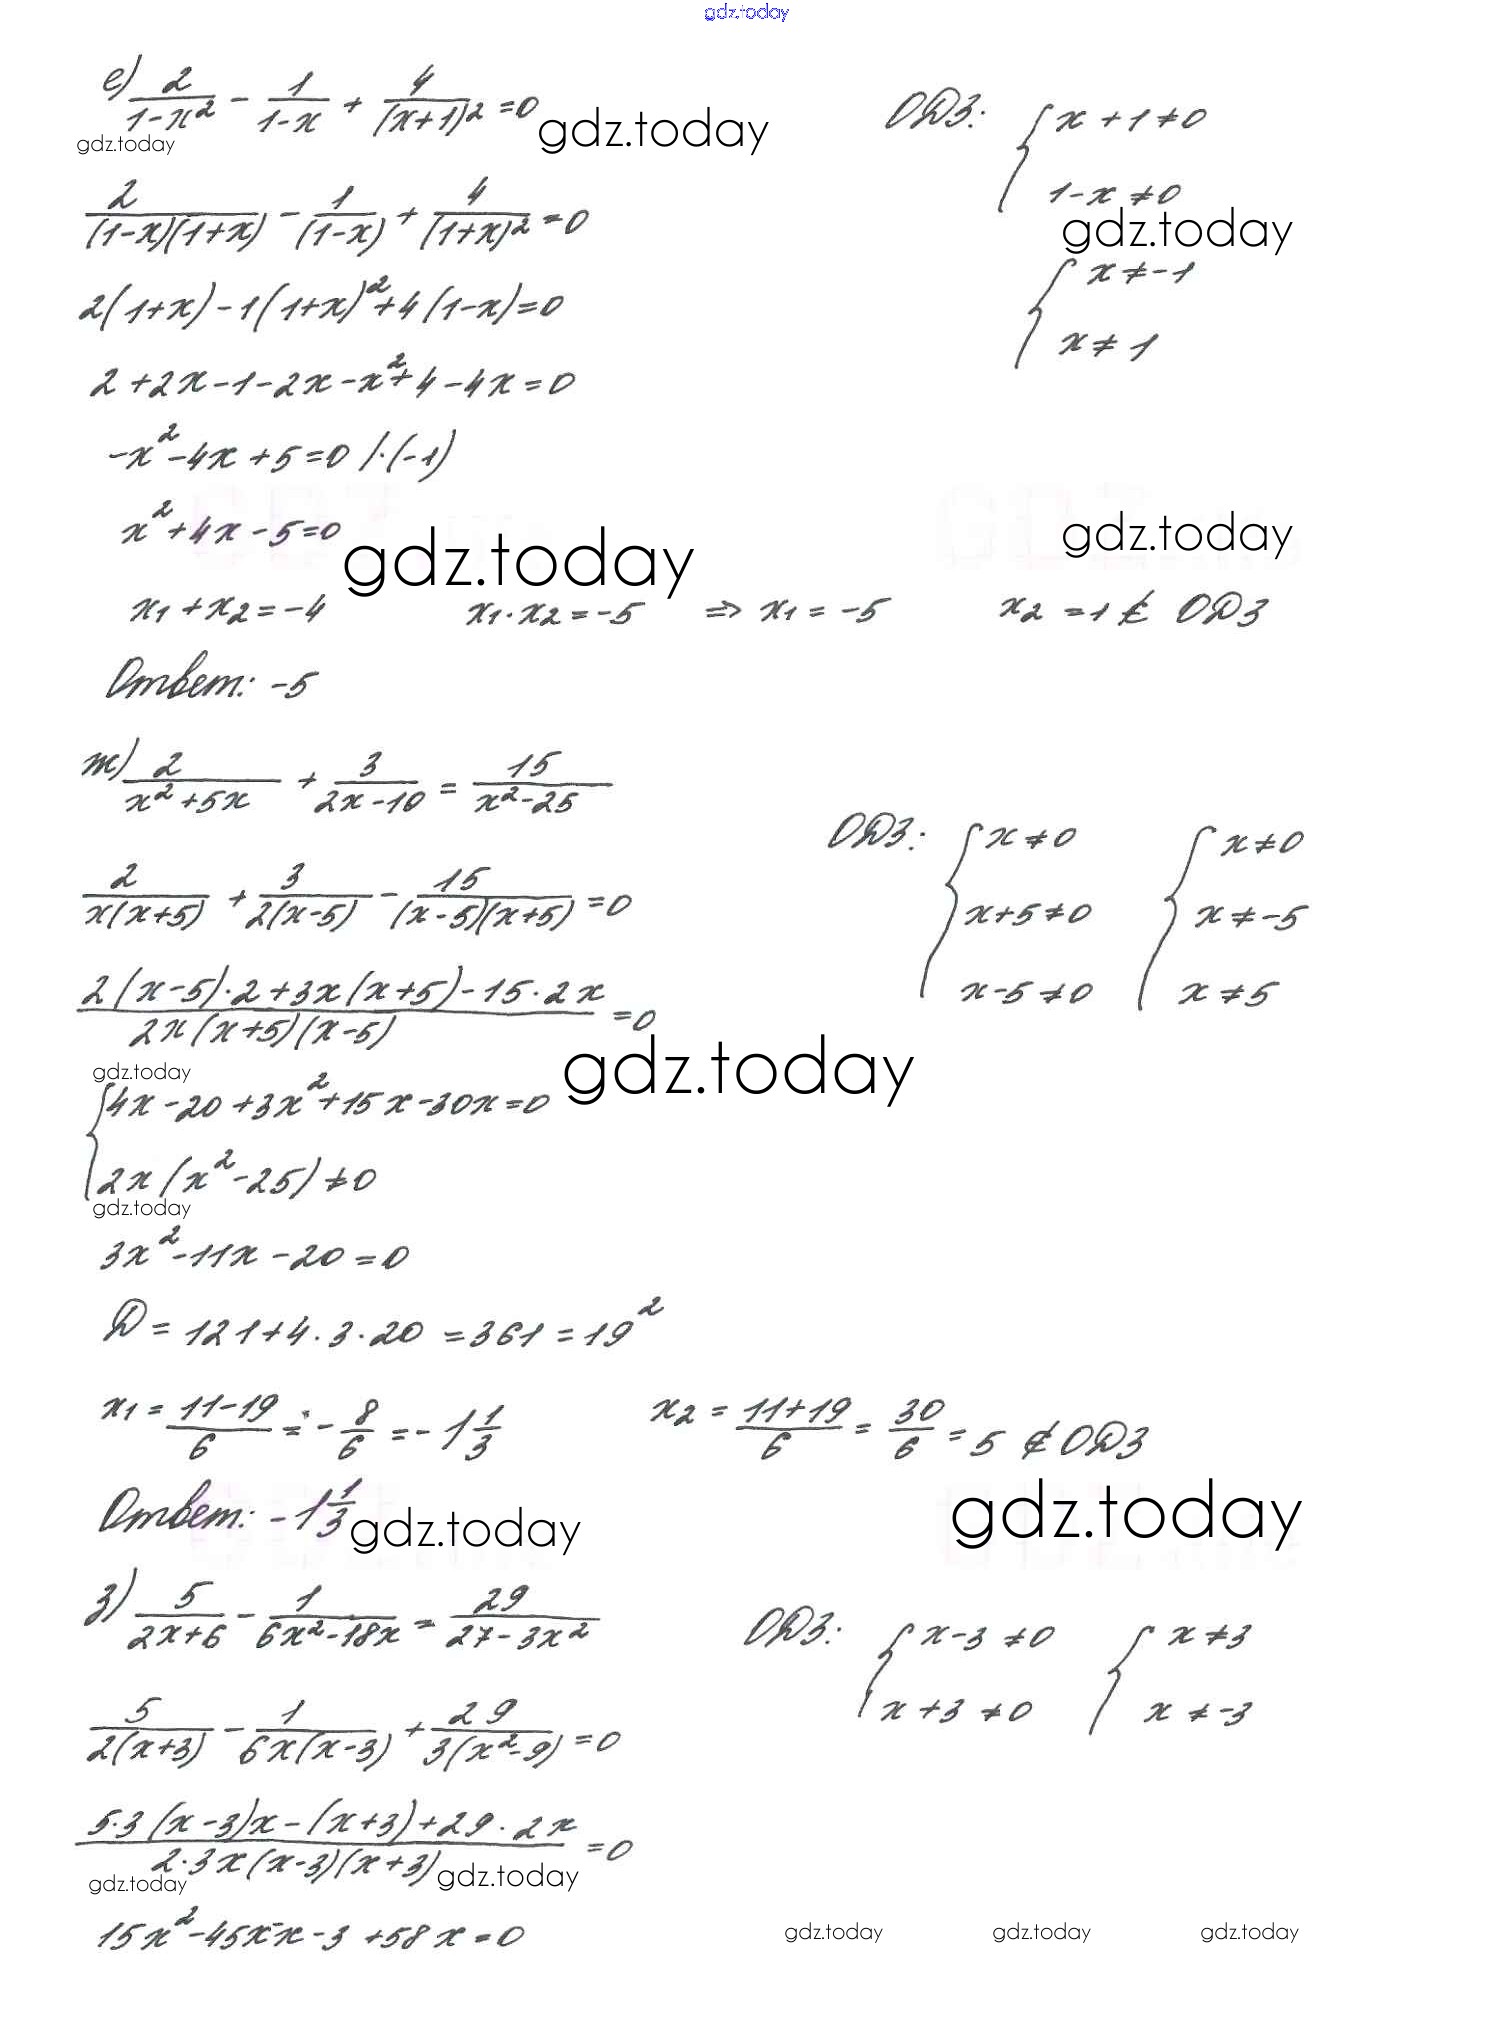 gdz.today
е) 2/(1-x²) - 1/(1-x) + 4/(x+1)² = 0
ОДЗ: { x+1≠0
1-x≠0
gdz.today
gdz.today
2/((1-x)(1+x)) - 1/(1-x) + 4/(1+x)² = 0
gdz.today
{ x≠-1
x≠1
2(1+x)-1(1+x)²+4(1-x)=0
2+2x-1-2x-x²+4-4x=0
-x²-4x+5=0 /·(-1)
x²+4x-5=0
gdz.today
gdz.today
x₁+x₂=-4 x₁·x₂=-5 => x₁=-5 x₂=1 ∉ ОДЗ
Ответ: -5
ж) 2/(x²+5x) + 3/(2x-10) = 15/(x²-25)
ОДЗ: { x≠0
x+5≠0
x-5≠0
{ x≠0
x≠-5
x≠5
2/(x(x+5)) + 3/(2(x-5)) - 15/((x-5)(x+5)) = 0
(2(x-5)·2+3x(x+5)-15·2x)/(2x(x+5)(x-5)) = 0
gdz.today
gdz.today
{ 4x-20+3x²+15x-30x=0
2x(x²-25)≠0
gdz.today
3x²-11x-20=0
D=121+4·3·20=361=19²
x₁ = (11-19)/6 = -8/6 = -1 1/3 x₂ = (11+19)/6 = 30/6 = 5 ∉ ОДЗ
Ответ: -1 1/3
gdz.today
gdz.today
з) 5/(2x+6) - 1/(6x²-18x) = 29/(27-3x²)
ОДЗ: { x-3≠0
x+3≠0
{ x≠3
x≠-3
5/(2(x+3)) - 1/(6x(x-3)) + 29/(3(x²-9)) = 0
(5·3(x-3)x-(x+3)+29·2x)/(2·3x(x-3)(x+3)) = 0
gdz.today
gdz.today
15x²-45x-x-3+58x=0
gdz.today gdz.today gdz.today